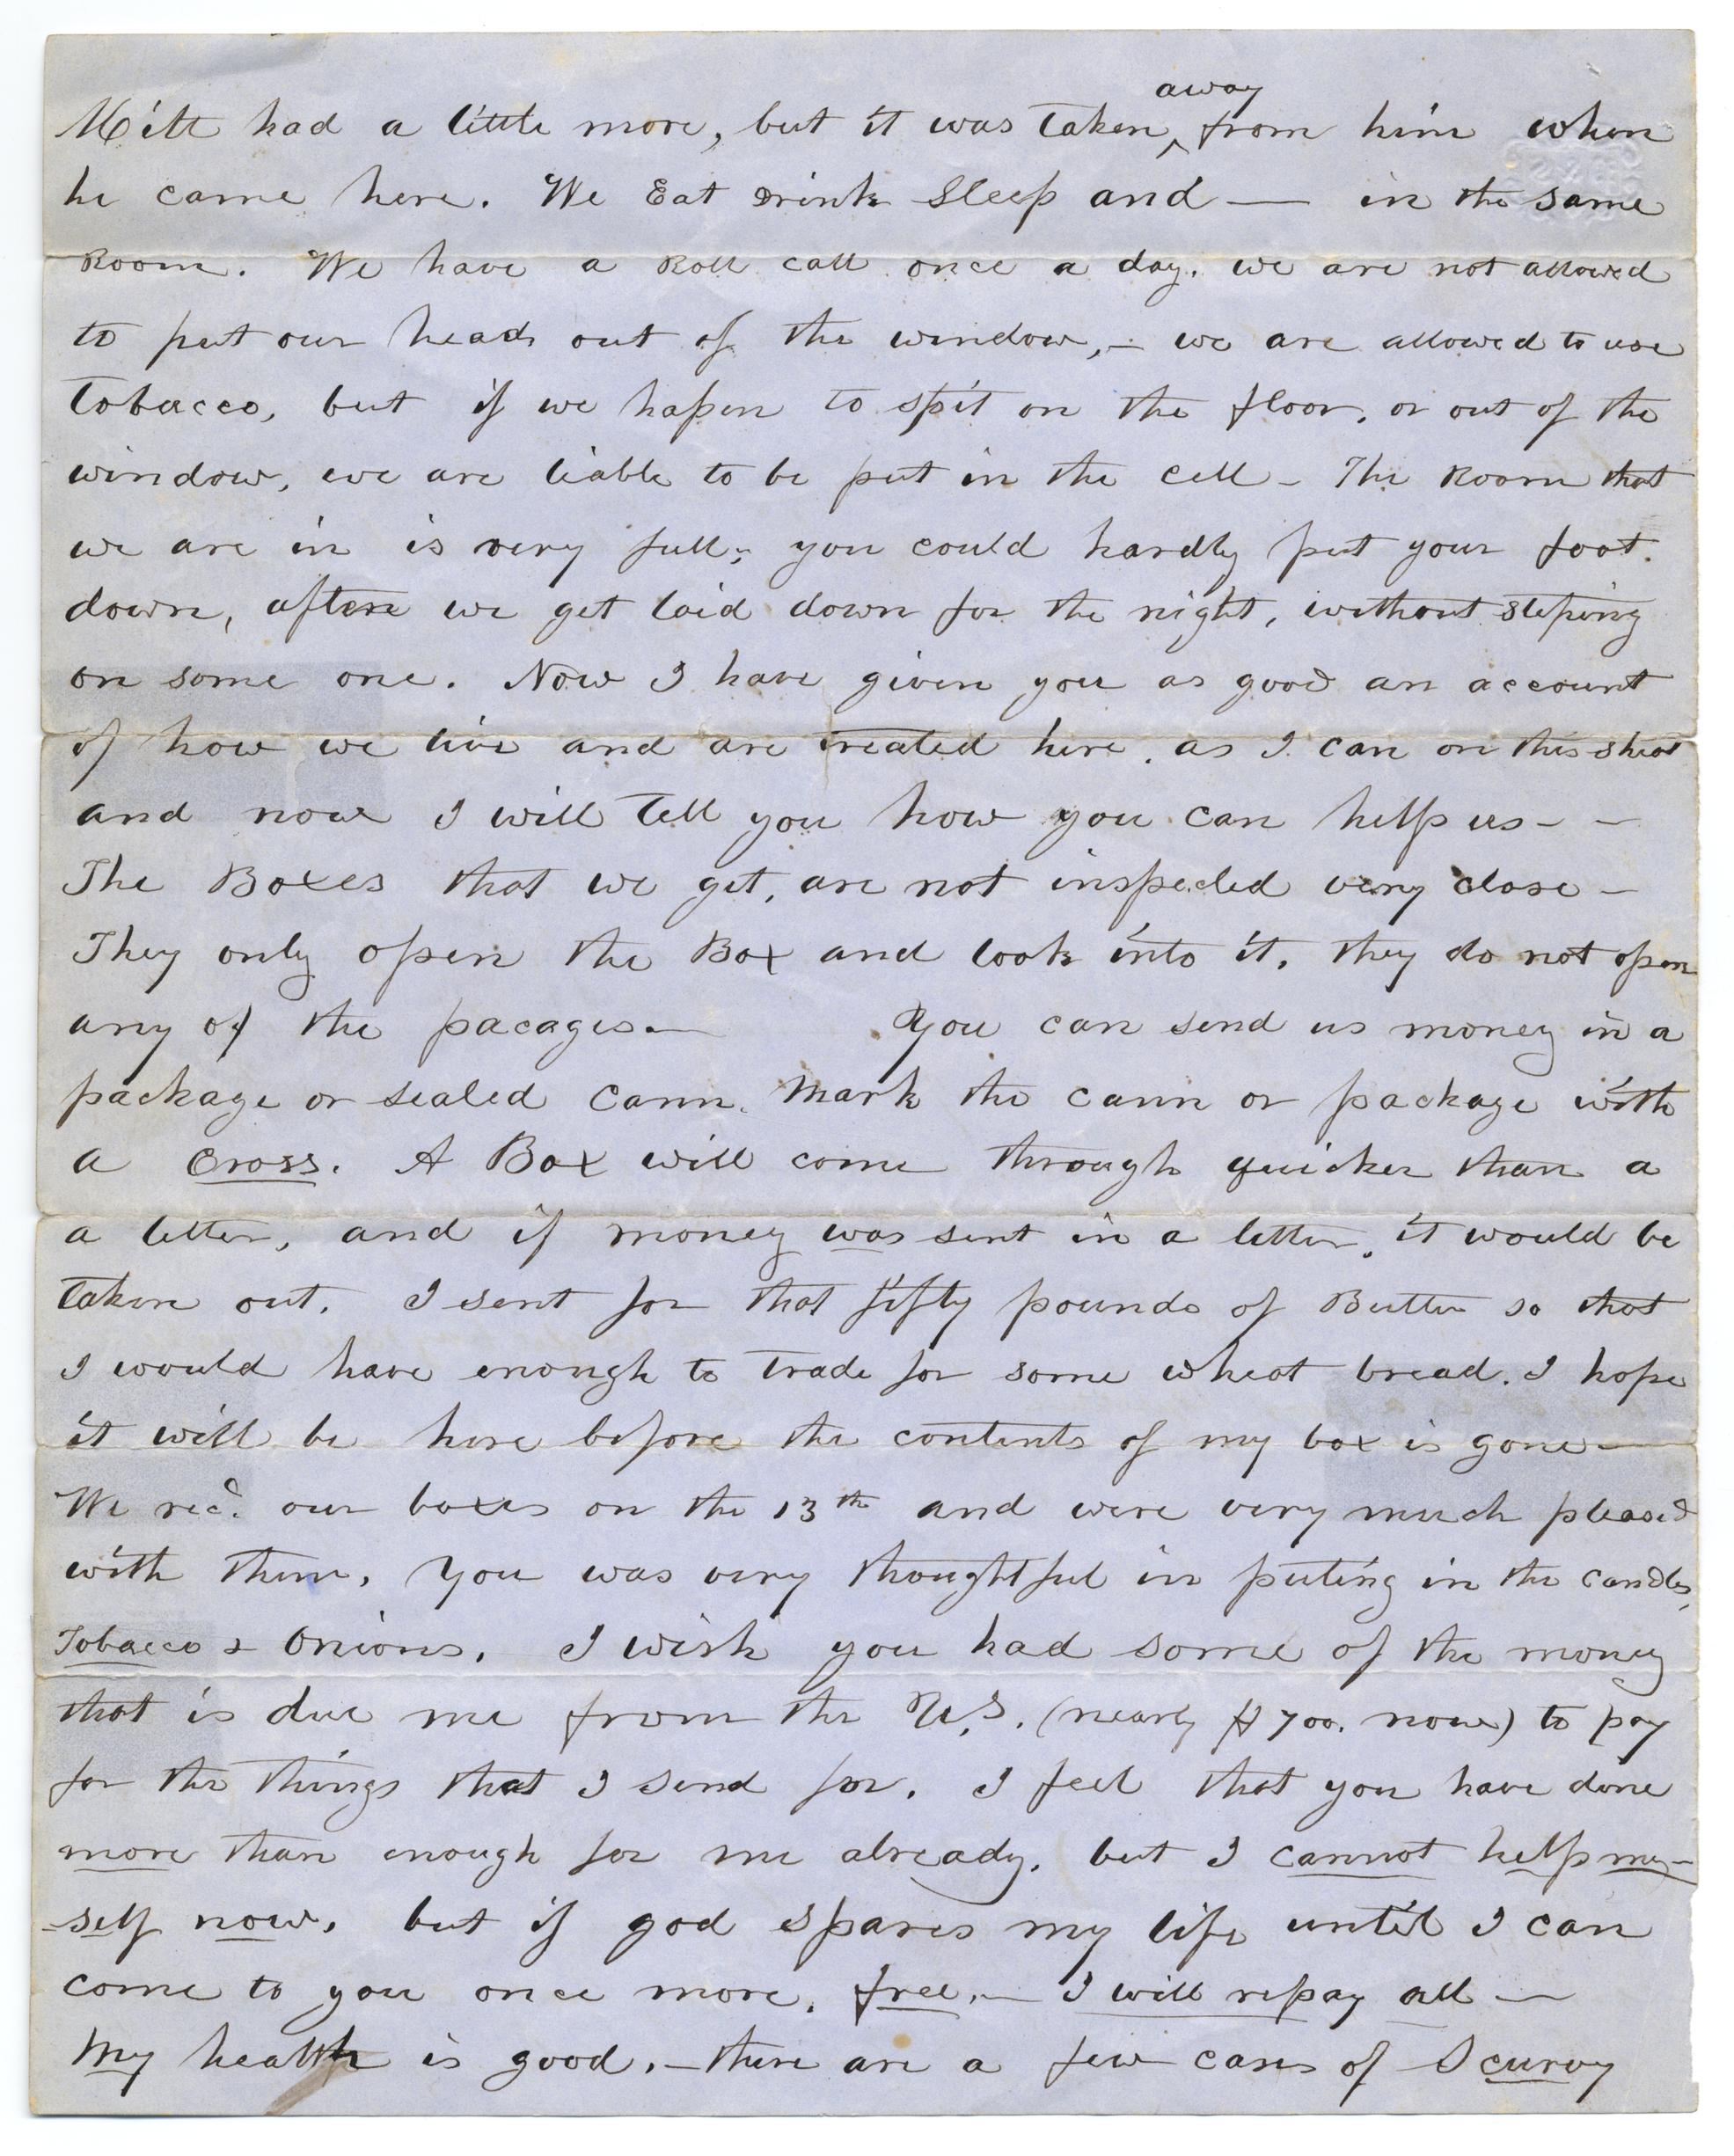 Milt had a little more, but it was taken away from him when
he came here. We Eat Drink Sleep and — in the same
Room. We have a Roll call once a day. we are not allowed
to put our heads out of the window, – we are allowed to use
Tobacco, but if we hapen to spit on the floor, or out of the
window, we are liable to be put in the cell – The Room that
we are in is very full; you could hardly put your foot
down, after we get laid down for the night, without steping
on some one. Now I have given you as good an account
of how we live and are treated here, as I can on this sheet
and now I will tell you how you can help us – –
The Boxes that we get, are not inspected very close –
They only open the Box and look into it, they do not open
any of the pacages. — You can send us money in a
package or sealed Cann. Mark the cann or package with
a Cross. A Box will come through quicker than a
a letter, and if money was sent in a letter, it would be
taken out. I sent for that fifty pounds of Butter so that
I would have enough to trade for some wheat bread. I hope
it will be here before the contents of my box is gone —
We recd. our boxes on the 13th and were very much pleased
with them, you was very thoughtful in puting in the candles,
Tobacco & Onions. I wish you had some of the money
that is due me from the U.S. (nearly $700. now) to pay
for the things that I send for. I feel that you have done
more than enough for me already, but I cannot help my-
-self now, but if god spares my life until I can
come to you once more, free, — I will repay all —
My health is good, – there are a few cases of Scurvy